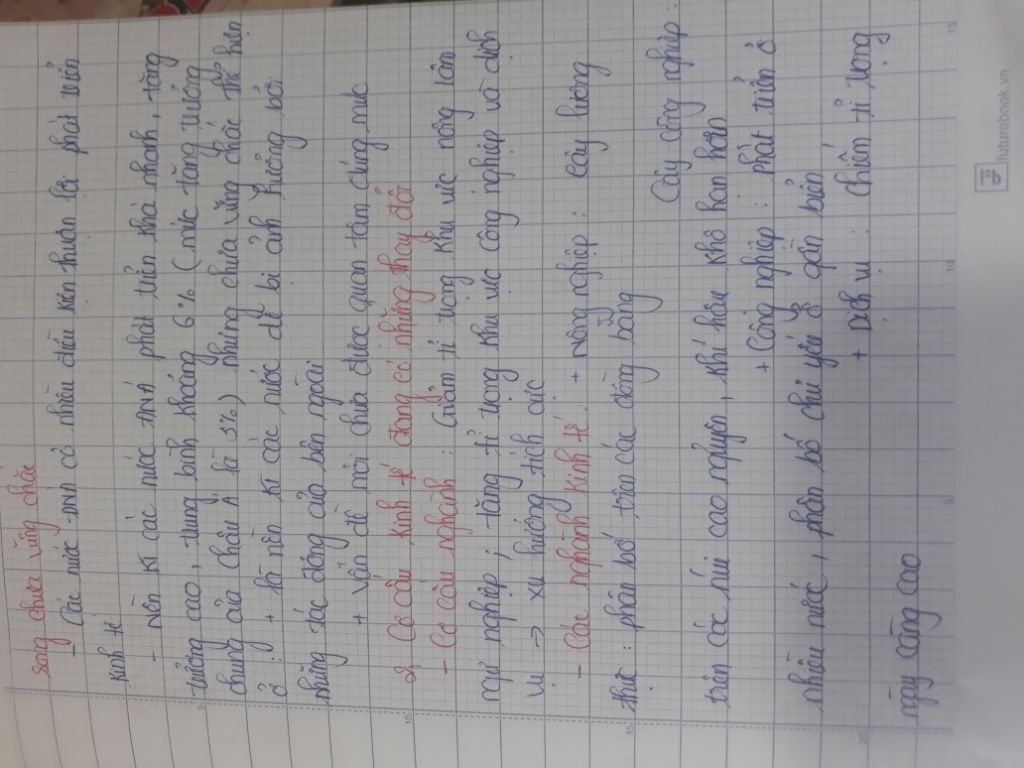 song chưa vững chắc
- Các nước ĐNÁ có nhiều điều kiện thuận lợi phát triển
kinh tế
- Nền KT các nước ĐNÁ phát triển khá nhanh, tăng
trưởng cao, trung bình khoảng 6% (mức tăng trưởng
chung của Châu Á là 3%) nhưng chưa vững chắc thể hiện
ở: + là nền KT các nước dễ bị ảnh hưởng bởi
những tác động của bên ngoài
+ vấn đề môi chưa được quan tâm đúng mức
2, Cơ cấu kinh tế đang có những thay đổi
- Cơ cấu nghành: Giảm tỉ trọng khu vực nông lâm
ngư nghiệp, tăng tỉ trọng khu vực công nghiệp và dịch
vụ => xu hướng tích cực
- Các nghành kinh tế: + Nông nghiệp: cây lương
thực: phân bố trên các đồng bằng
Cây công nghiệp:
trên các núi cao nguyên, khí hậu khô hạn hơn
+ Công nghiệp: phát triển ở
nhiều nước, phân bố chủ yếu ở gần biển
+ Dịch vụ: chiếm tỉ trọng
ngày càng cao
futurebook.vn